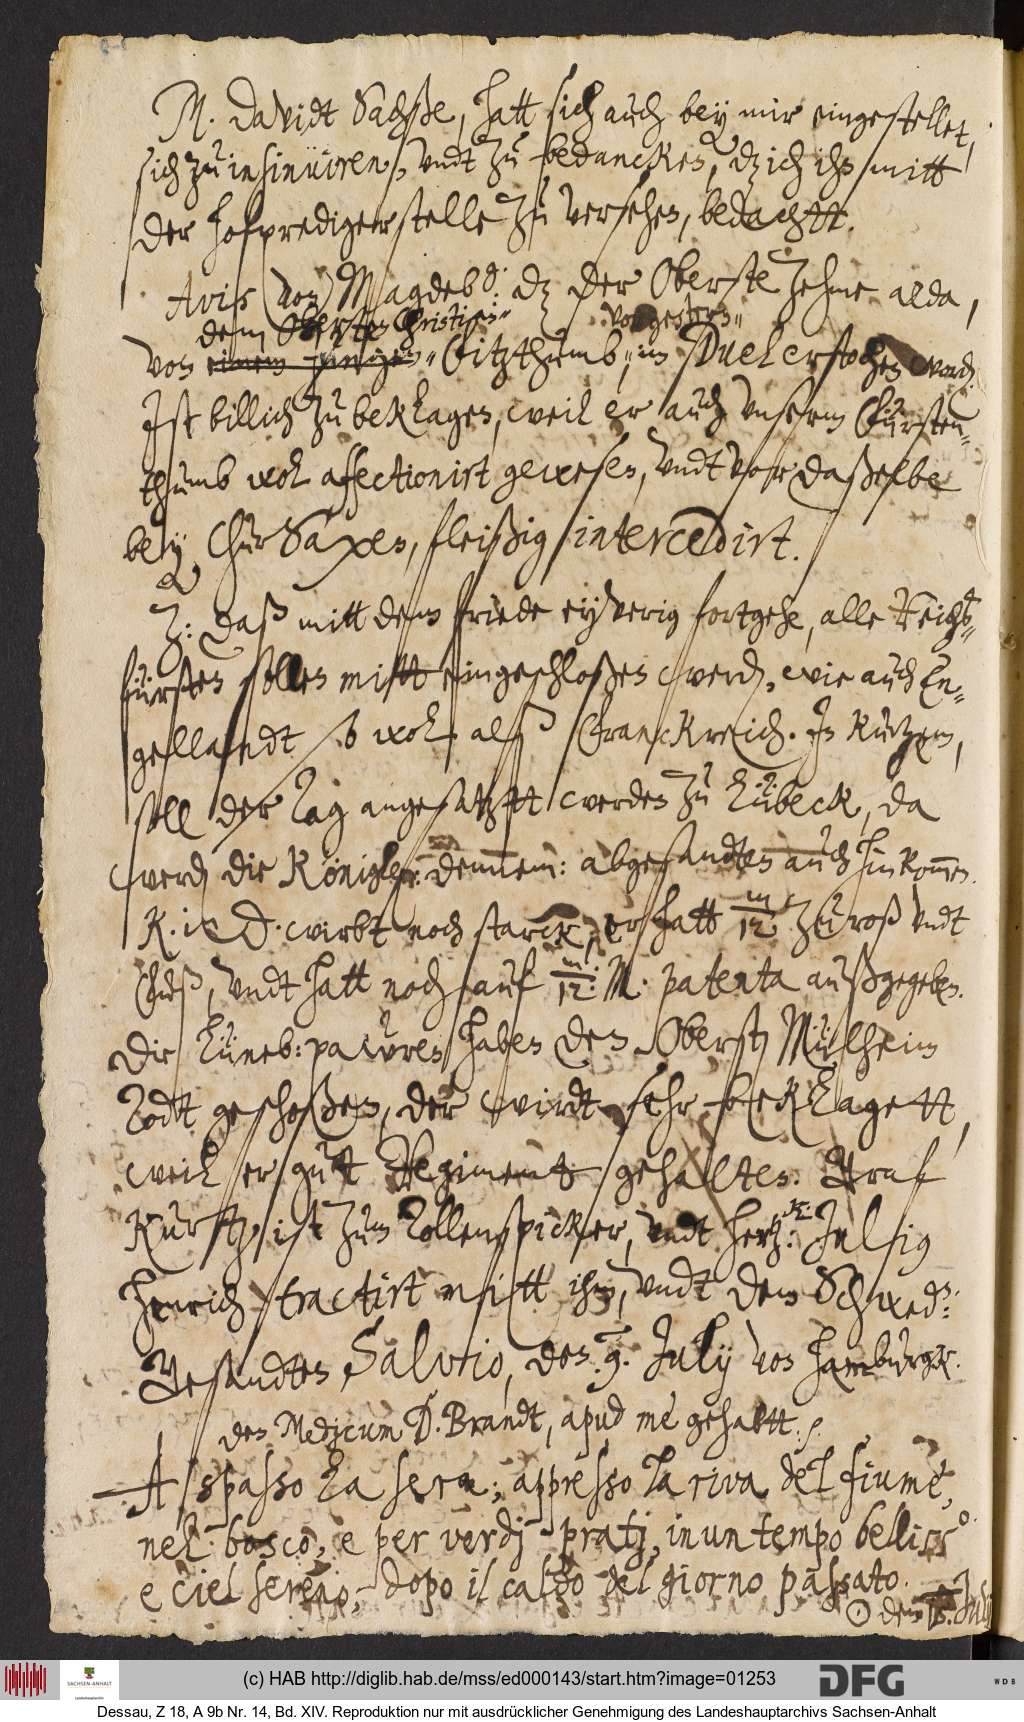 M. Davidt Sachße, hatt sich auch bey mir eingestellet,
sich zu insinuiren, undt zu bedancken, dz ich ihn mitt
der hofpredigerstelle zu versehen, bedachtt.
Avis von Magdeb: dz der Oberste Zehme alda,
dem Obersten Christian vorgestern
von einem jungen Vitzthumb, im Duel erstochen word.
Ist billich zu beklagen, weil er auch unserm Fürsten-
thumb wol affectionirt gewesen, undt vor daßelbe
bey Chur Saxen, fleißig intercedirt.
Z: daß mitt dem friede eyverig fortgehe, alle Reichs-
fürsten sollen mitt eingeschloßen werd, wie auch En-
gellandt so wol alß Franckreich. In kurtzem,
soll der Tag angesatztt werden zu Lübeck, da
werd die Königl: dennem: abgesandten auch hinkommen.
K. i D. wirbt noch starck, er hatt 12 m zu roß undt
Fuß, undt hatt noch auf 12 m: M. patenta außgegeben.
Die Lüneb: pawren haben den Oberst Mülheim
Todt geschoßen, der wirdt sehr beklagett,
weil er gutt Regiment gehalten. Graf
Kurtz, ist zum Zollenspicker, undt hertz: Julsig
K:
henrich tractirt mitt ihm, undt dem Schwed:
Gesandten Salvio, den 9. July von hamburgk.
den Medicum D. Brandt, apud me gehabtt.
A spasso la sera; appresso la riva del fiume,
nel bosco, e per verdj pratj, in un tempo belliss.o
e ciel sereno, dopo il caldo del giorno passato.
☉ den 15. July
(c) HAB http://diglib.hab.de/mss/ed000143/start.htm?image=01253
SACHSEN-ANHALT
DFG
WDB
Dessau, Z 18, A 9b Nr. 14, Bd. XIV. Reproduktion nur mit ausdrücklicher Genehmigung des Landeshauptarchivs Sachsen-Anhalt